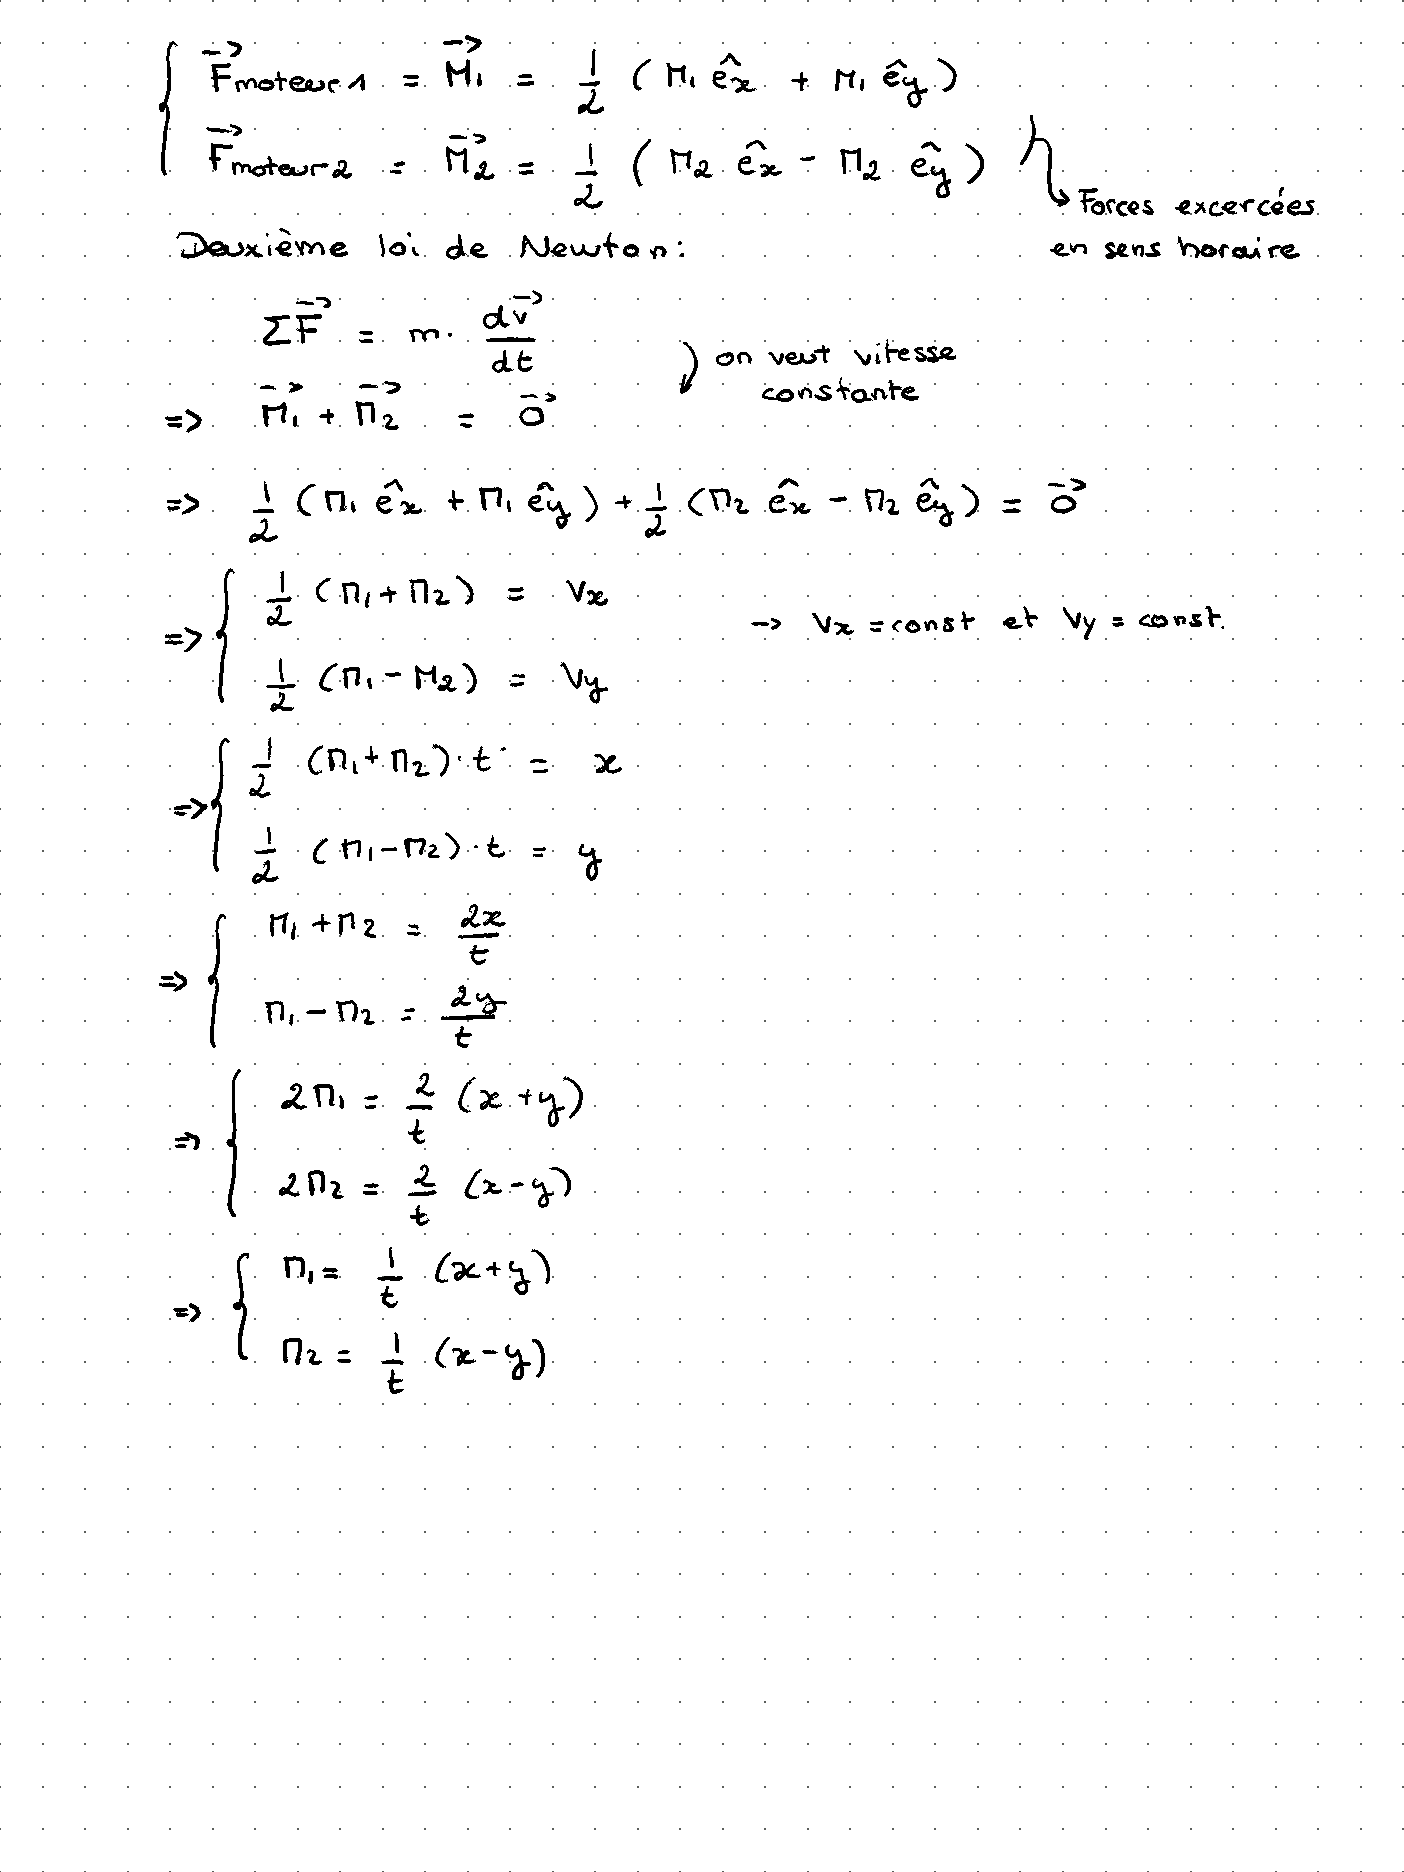 { F⃗moteur1 = M⃗₁ = 1/2 ( M₁ êx + M₁ êy )
F⃗moteur2 = M⃗₂ = 1/2 ( M₂ êx - M₂ êy )
↳ Forces excercées
en sens horaire
Deuxième loi de Newton :
ΣF⃗ = m · dv⃗/dt
on veut vitesse
constante
=> M⃗₁ + M⃗₂ = 0⃗
=> 1/2 ( M₁ êx + M₁ êy ) + 1/2 ( M₂ êx - M₂ êy ) = 0⃗
=> { 1/2 ( M₁ + M₂ ) = Vx
-> Vx = const et Vy = const.
1/2 ( M₁ - M₂ ) = Vy
=> { 1/2 ( M₁ + M₂ ) · t = x
1/2 ( M₁ - M₂ ) · t = y
=> { M₁ + M₂ = 2x/t
M₁ - M₂ = 2y/t
=> { 2M₁ = 2/t ( x + y )
2M₂ = 2/t ( x - y )
=> { M₁ = 1/t ( x + y )
M₂ = 1/t ( x - y )